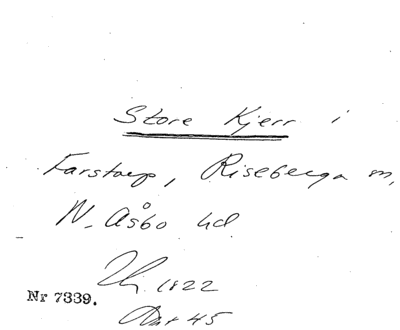 Store Kjerr i
Farstorp, Riseberga m,
N. Åsbo hd
1822
Nr 7339.
45